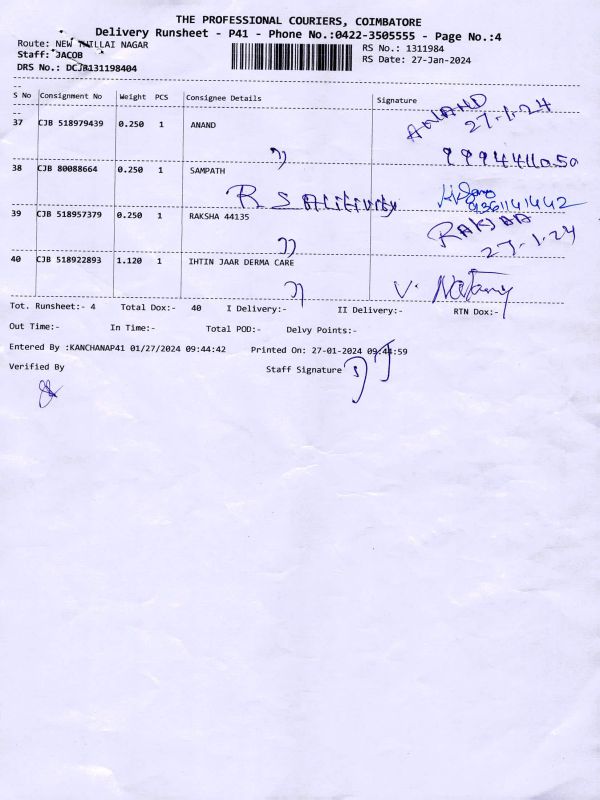 THE PROFESSIONAL COURIERS, COIMBATORE
Delivery Runsheet - P41 - Phone No.:0422-3505555 - Page No.:4
Route: NEW THILLAI NAGAR
RS No.: 1311984
Staff: JACOB
RS Date: 27-Jan-2024
DRS No.: DCJB131198404
S No Consignment No Weight PCS Consignee Details Signature
37 CJB 518979439 0.250 1 ANAND
ANAND
27.1.24
9994411050
38 CJB 80088664 0.250 1 SAMPATH
R S
9361141442
39 CJB 518957379 0.250 1 RAKSHA 44135
RAKSHA
27.1.24
40 CJB 518922893 1.120 1 IHTIN JAAR DERMA CARE
V.
Tot. Runsheet:- 4 Total Dox:- 40 I Delivery:- II Delivery:- RTN Dox:-
Out Time:- In Time:- Total POD:- Delvy Points:-
Entered By :KANCHANAP41 01/27/2024 09:44:42 Printed On: 27-01-2024 09:44:59
Verified By Staff Signature